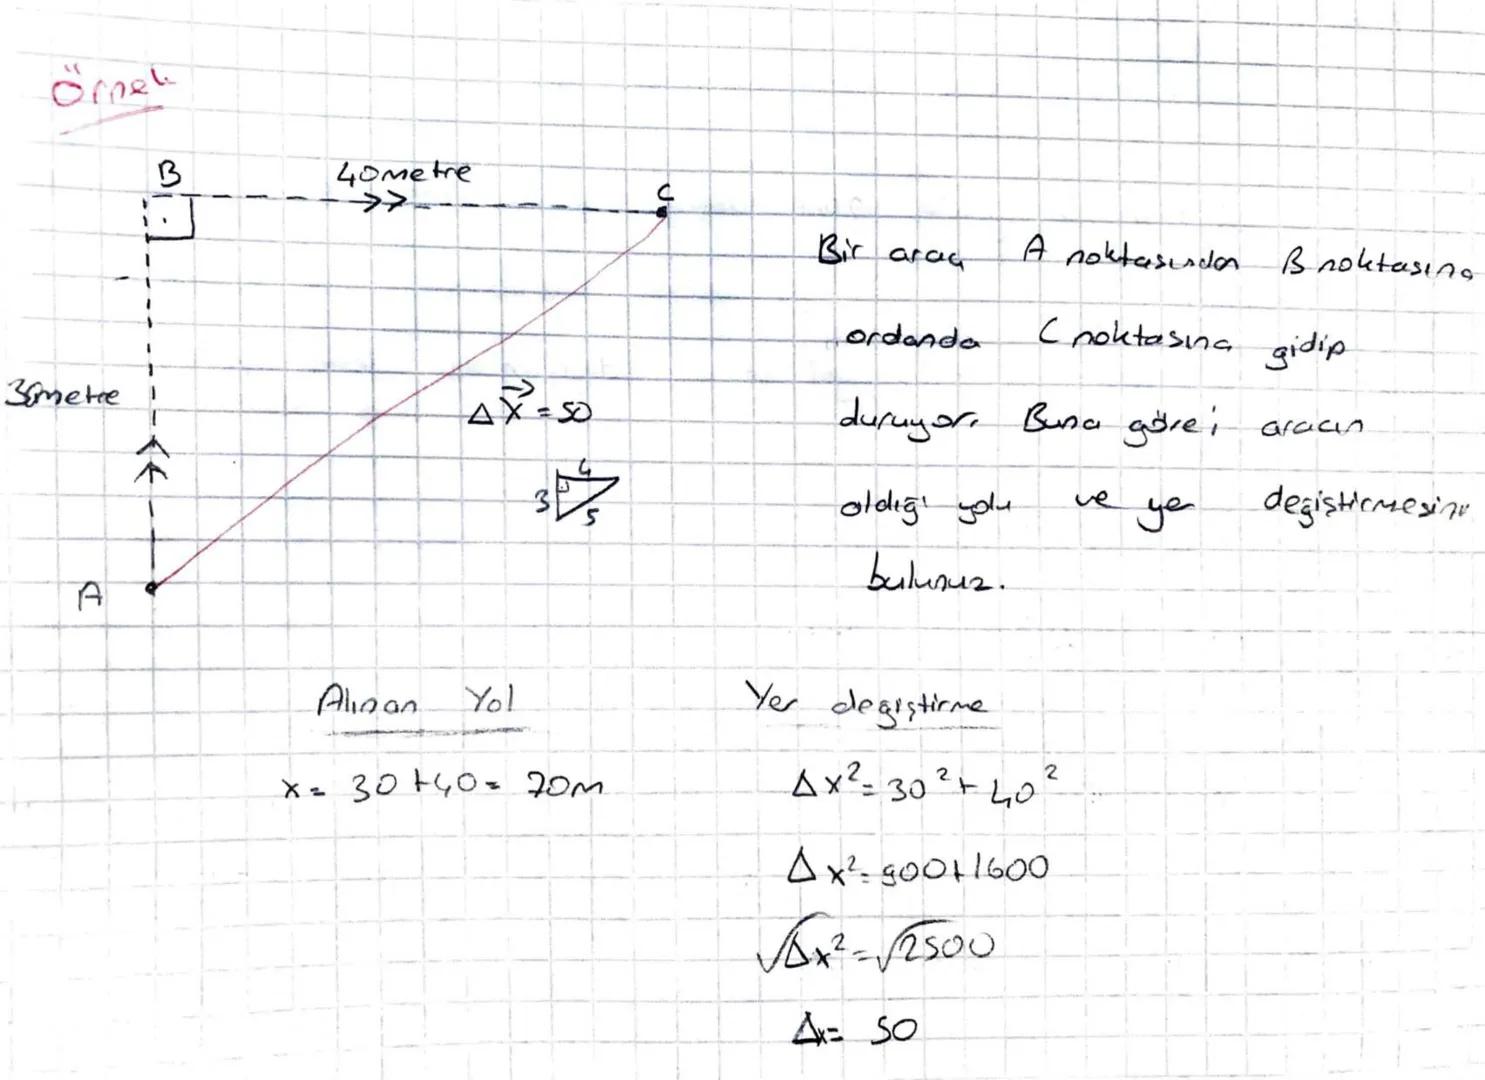 Örnek
B
40metre
C
30metre
Δx⃗ = 50
4
3
5
A
Bir araç A noktasından B noktasına
ordanda C noktasına gidip
duruyor. Buna göre; aracın
aldığı yolu ve yer değiştirmesini
bulunuz.
Alınan Yol
x = 30+40 = 70m
Yer değiştirme
Δx² = 30² + 40²
Δx² = 900+1600
√Δx² = √2500
Δx = 50